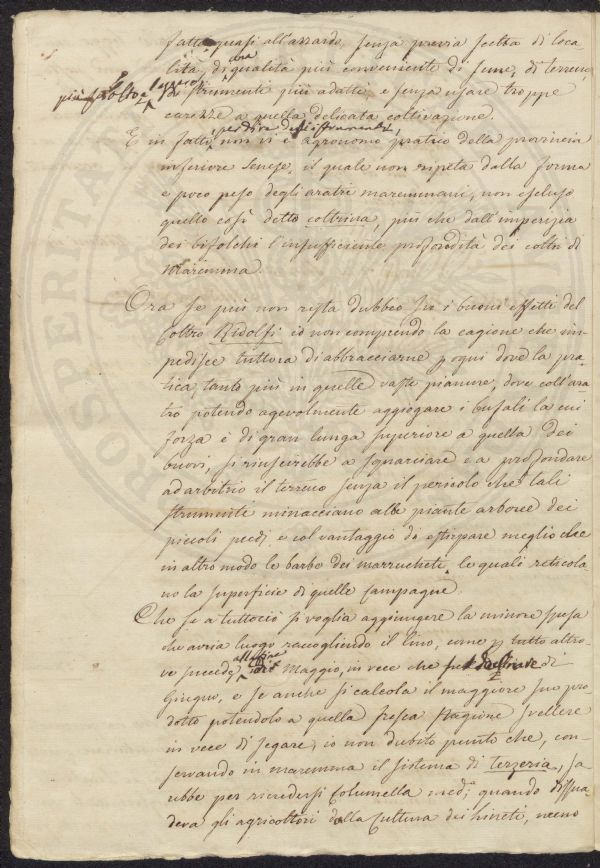 fatto, quasi all'azzardo, senza previa scelta di loca-
lità, di qualità più conveniente di seme, di terreno
di strumenti più adatti, e senza usare troppe
carezze a quella delicata coltivazione.
E in fatti, non vi è agronomo pratico della provincia
inferiore Senese, il quale non ripeta dalla forma
e poco peso degli aratri maremmani, non escluso
quello così detto coltrina, più che dall'imperizia
dei bifolchi l'insufficiente profondità dei coltri di
Maremma.
Ora se più non resta dubbio su i buoni effetti del
Coltro Ridolfi io non comprendo la cagione che im-
pedisce tuttora di abbracciarne p ogni dove la pra-
tica, tanto più in quelle vaste pianure, dove coll'ara-
tro potendo agevolmente aggiogare i bufali la cui
forza è di gran lunga superiore a quella dei
buovi, si riuscirebbe a squarciare e a profondare
ad arbitrio il terreno senza il pericolo che tali
strumenti minacciano alle piante arboree dei
piccoli poderi e col vantaggio di estirpare meglio che
in altro modo le barbe dei marrucheti, le quali reticola-
no la superficie di quelle campagne.
Che se a tuttociò si voglia aggiungere la minore spesa
che avria luogo raccogliendo il lino, come p tutto altro-
ve succede, Maggio, in vece che di
Giugno, e se anche si calcola il maggiore suo pro-
dotto potendolo a quella fresca stagione svellere
in vece di segare; io non dubito punto che, con-
servando in maremma il sistema di terzeria, sa-
rebbe per ricredersi Columella med; quando dissua-
deva gli agricoltori dalla cultura dei lineti, meno